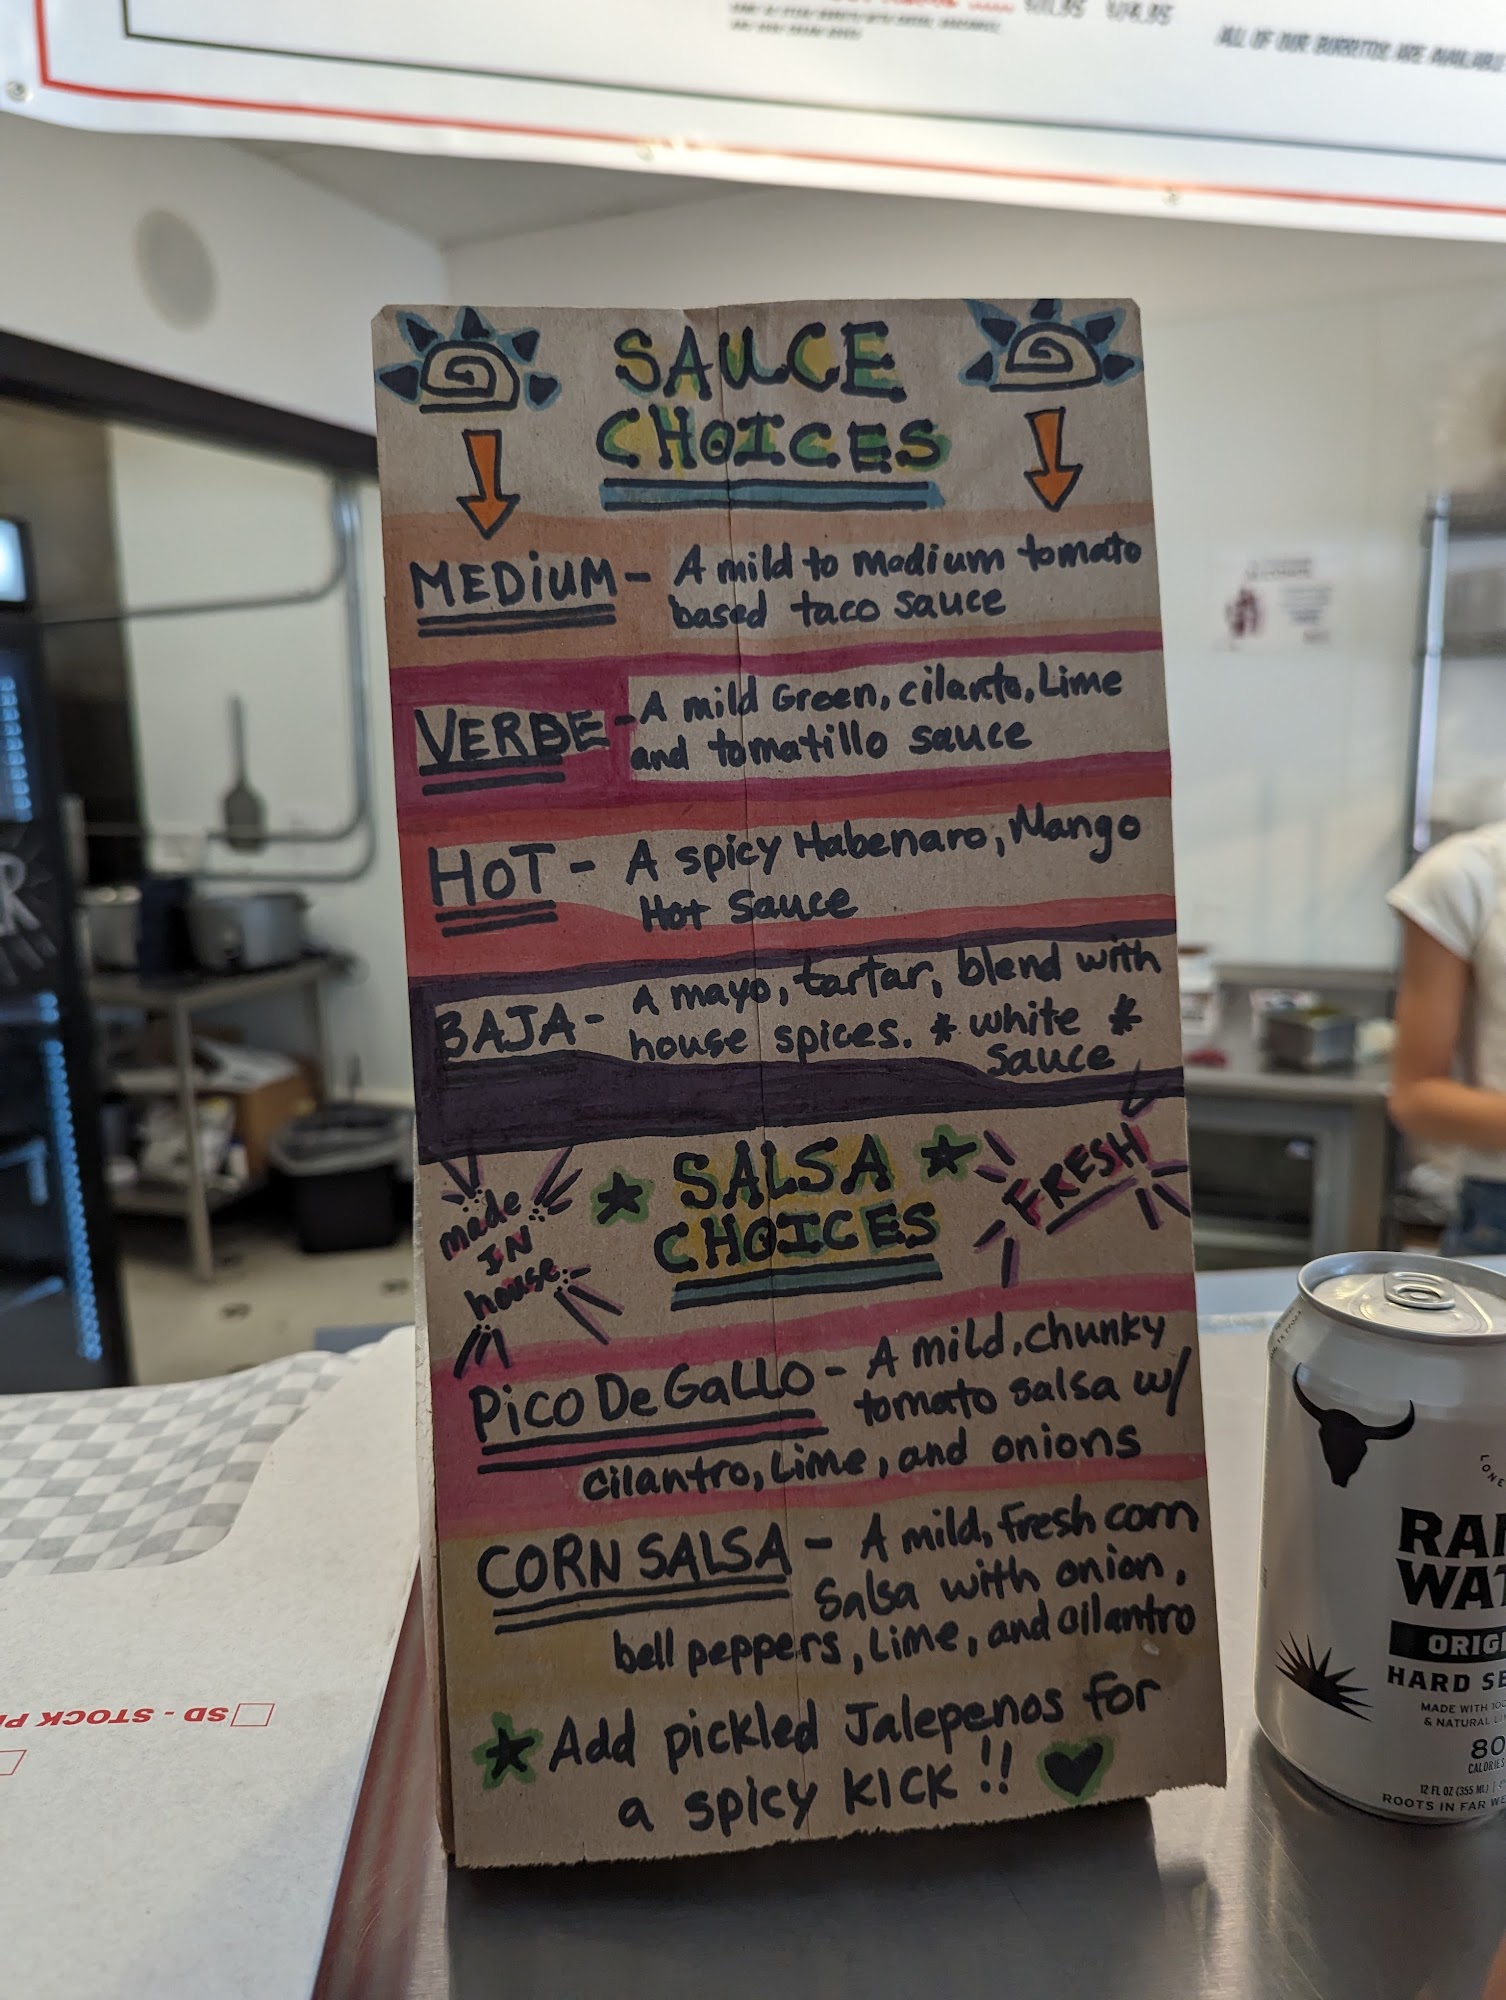 $11.95 $14.95
ALL OF OUR BURRITOS ARE AVAILABLE
SAUCE
CHOICES
MEDIUM - A mild to medium tomato
based taco sauce
VERDE - A mild Green, cilanto, Lime
and tomatillo sauce
HOT - A spicy Habenaro, Mango
Hot Sauce
BAJA - A mayo, tartar, blend with
house spices. * white *
sauce
made
IN
house
SALSA
CHOICES
FRESH
PICO De GALLO - A mild, chunky
tomato salsa w/
cilantro, Lime, and onions
CORN SALSA - A mild, fresh corn
Salsa with onion,
bell peppers, Lime, and cilantro
Add pickled Jalepenos for
a spicy KICK!!
SD - STOCK
LONE
RA
WAT
ORIG
HARD SE
MADE WITH 100
& NATURAL
80
CALORIES
12 FL OZ (355 ML)
ROOTS IN FAR WE